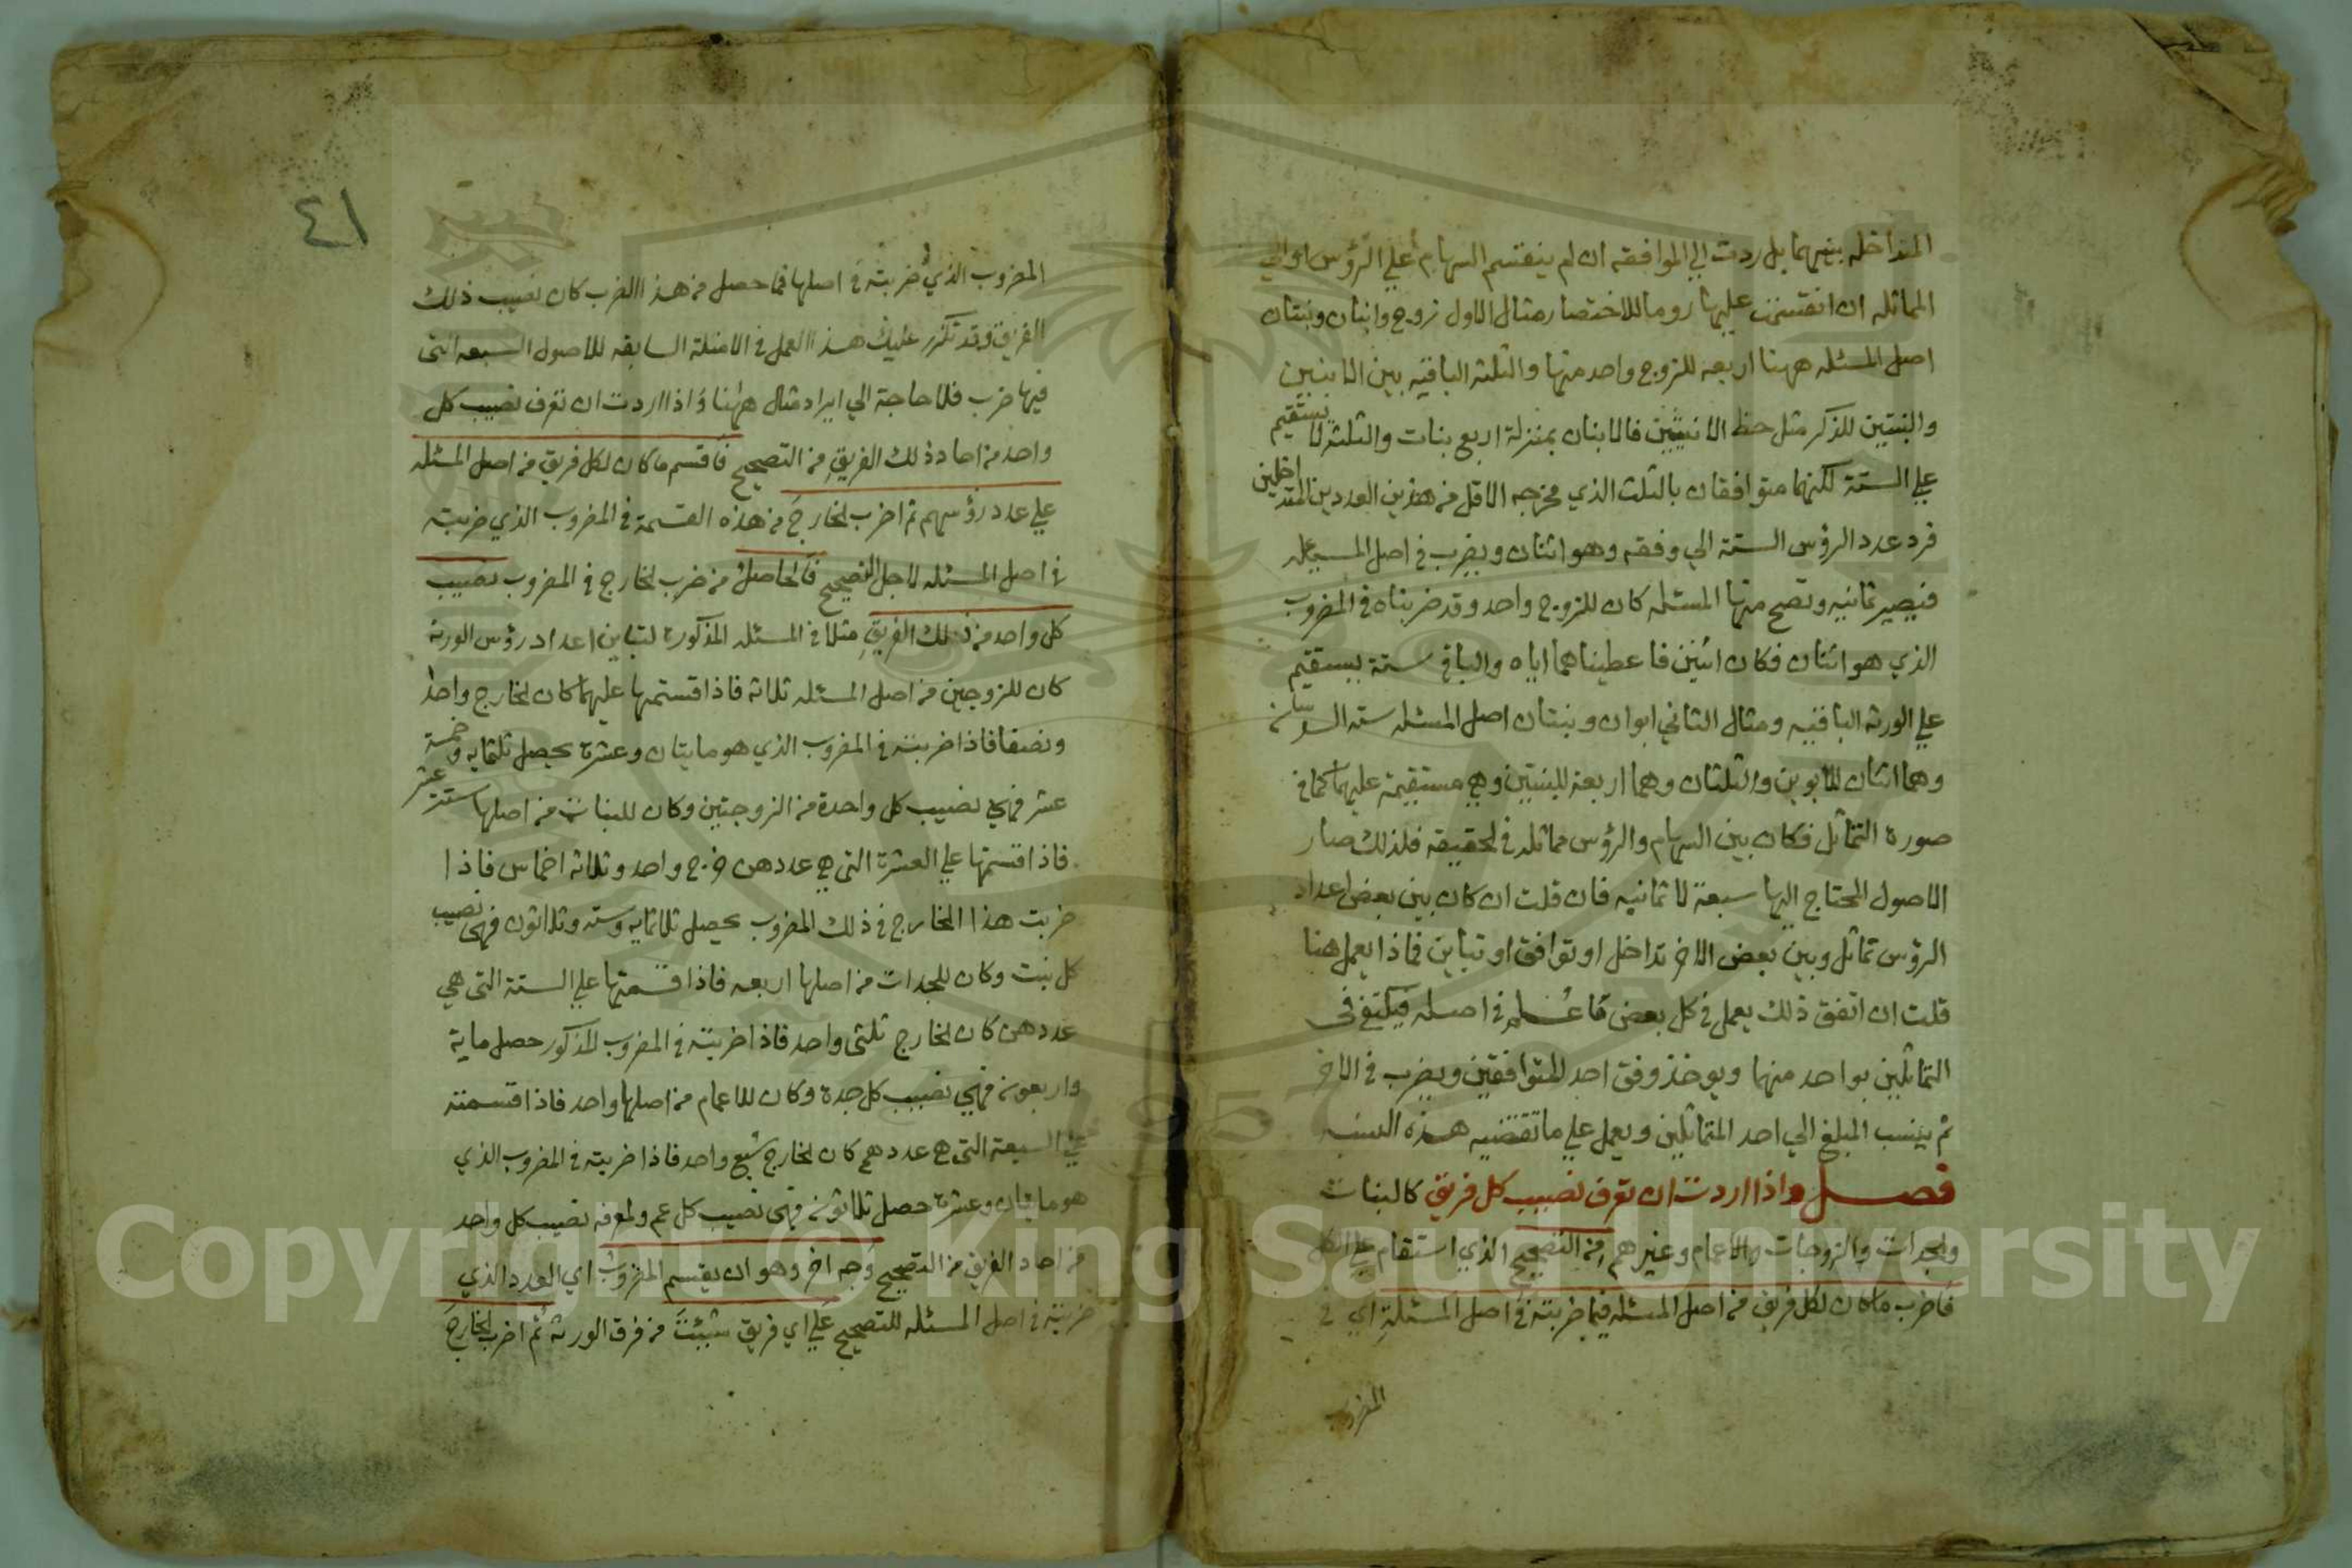 المتداخله بينهما بل ردت الي الموافقه ان لم ينقسم السهام علي الرؤس او الي
المماثله ان انقسمت عليها روما للاختصار مثال الاول زوج وابنان وبنتان
اصل المسئله ههنا اربعه للزوج واحد منها والثلثه الباقيه بين الابنين
والبنتين للذكر مثل حظ الانثيين فالابنان بمنزلة اربع بنات والثلثه لا يستقيم
علي الستة لكنهما متوافقان بالثلث الذي مخرجه الاقل من هذين العددين المتداخلين
فرد عدد الرؤس الستة الي وفقه وهو اثنان ويضرب في اصل المسئله
فيصير ثمانيه وتصح منها المسئله كان للزوج واحد وقد ضربناه في المضروب
الذي هو اثنان فكان اثنين فاعطيناهما اياه والباقي ستة يستقيم
علي الورثه الباقيه ومثال الثاني ابوان وبنتان اصل المسئله سته السدسان
وهما اثنان للابوين والثلثان وهما اربعة للبنتين وهي مستقيمة عليهما كما في
صورة التماثل فكان بين السهام والرؤس مماثله في الحقيقه فلذلك صار
الاصول المحتاج اليها سبعة لا ثمانيه فان قلت ان كان بين بعض اعداد
الرؤس تماثل وبين بعض الاخر تداخل او توافق او تباين فماذا يعمل هنا
قلت ان اتفق ذلك يعمل في كل بعض ما عُلم في اصله فيكتفي في
التماثلين بواحد منهما ويوخذ وفق احد المتوافقين ويضرب في الاخر
ثم ينسب المبلغ الي احد المتماثلين ويعمل علي ما تقتضيه هذه النسبه
فصل واذا اردت ان تعرف نصيب كل فريق كالبنات
والجدات والزوجات والاعمام وغيرهم من التصحيح الذي استقام علي الكل
فاضرب ما كان لكل فريق من اصل المسئله فيما ضربته في اصل المسئلة اي في
المضروب
٤١
المضروب الذي ضربته في اصلها فما حصل من هذا الضرب كان نصيب ذلك
الفريق وقد تكرر عليك هذا العمل في الامثلة السابقه للاصول السبعه التي
فيها ضرب فلا حاجة الي ايراد مثال ههنا واذا اردت ان تعرف نصيب كل
واحد من احاد ذلك الفريق من التصحيح فاقسم ما كان لكل فريق من اصل المسئله
علي عدد رؤسهم ثم اضرب الخارج من هذه القسمة في المضروب الذي ضربته
في اصل المسئله لاجل التصحيح فالحاصل من ضرب الخارج في المضروب نصيب
كل واحد من ذلك الفريق مثلا في المسئله المذكورة لتباين اعداد رؤس الورثة
كان للزوجين من اصل المسئله ثلاثه فاذا قسمتها عليهما كان الخارج واحدا
ونصفا فاذا ضربته في المضروب الذي هو مايتان وعشرة يحصل ثلثمايه وخمسة
عشر فهي نصيب كل واحدة من الزوجتين وكان للبنات من اصلها ستة عشر
فاذا قسمتها علي العشرة التي هي عددهن خرج واحد وثلاثه اخماس فاذا
ضربت هذا الخارج في ذلك المضروب يحصل ثلاثمايه وسته وثلاثون فهي نصيب
كل بنت وكان للجدات من اصلها اربعه فاذا قسمتها علي الستة التي هي
عددهن كان الخارج ثلثي واحد فاذا ضربته في المضروب المذكور حصل ماية
واربعون فهي نصيب كل جدة وكان للاعمام من اصلها واحد فاذا قسمته
علي السبعة التي هي عددهم كان الخارج سُبع واحد فاذا ضربته في المضروب الذي
هو مايتان وعشرة حصل ثلاثون فهي نصيب كل عم ولمعرفه نصيب كل واحد
من احاد الفريق من التصحيح وجه اخر وهو ان يقسم المضروب اي العدد الذي
ضربته في اصل المسئله للتصحيح علي اي فريق شئت من فرق الورثة ثم اضرب الخارج
Copyright © King Saud University
1957